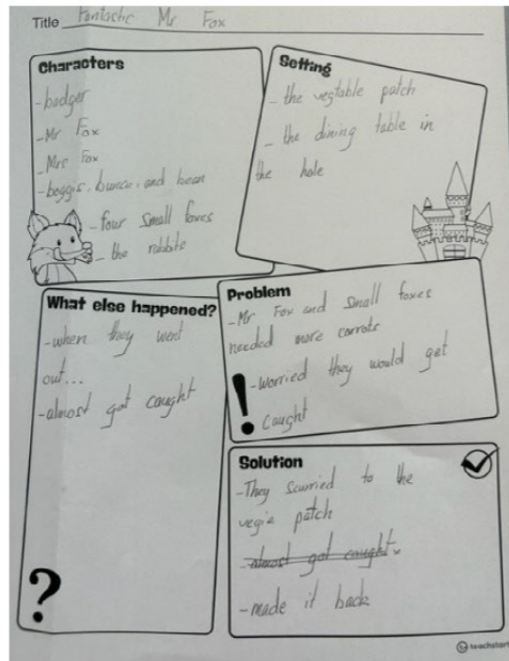 Title Fantastic Mr Fox
Characters
-badger
-Mr Fox
-Mrs Fox
-boggis, bunce, and bean
-four small foxes
-the rabbits
Setting
-the vegtable patch
-the dining table in
the hole
What else happened?
-when they went
out...
-almost got caught
?
Problem
-Mr Fox and small foxes
needed more carrots
-worried they would get
caught
!
Solution
-They scurried to the
vegie patch
-almost got caught x
-made it back
teachstarter